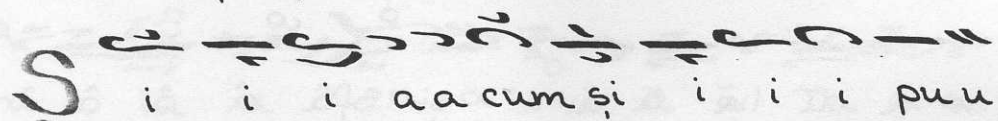 S i i i a a cum și i i i pu u